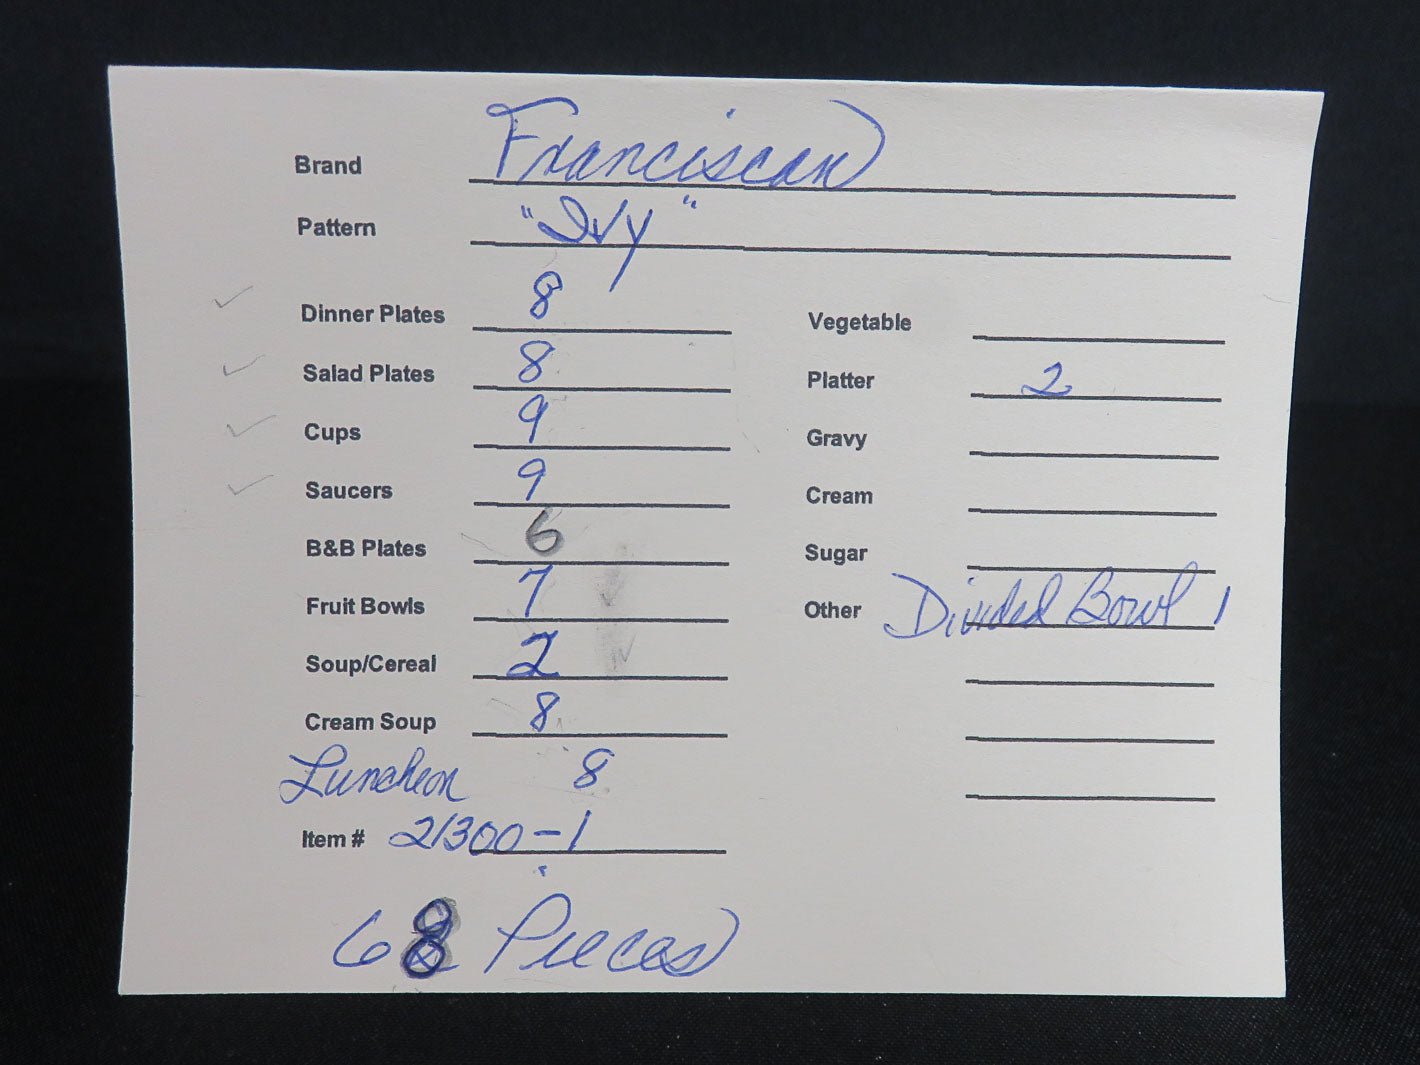 Brand Franciscan
Pattern "Ivy"
Dinner Plates 8
Salad Plates 8
Cups 9
Saucers 9
B&B Plates 6
Fruit Bowls 7
Soup/Cereal 2
Cream Soup 8
Luncheon 8
Item # 21300-1
Vegetable
Platter 2
Gravy
Cream
Sugar
Other Divided Bowl 1
68 Pieces